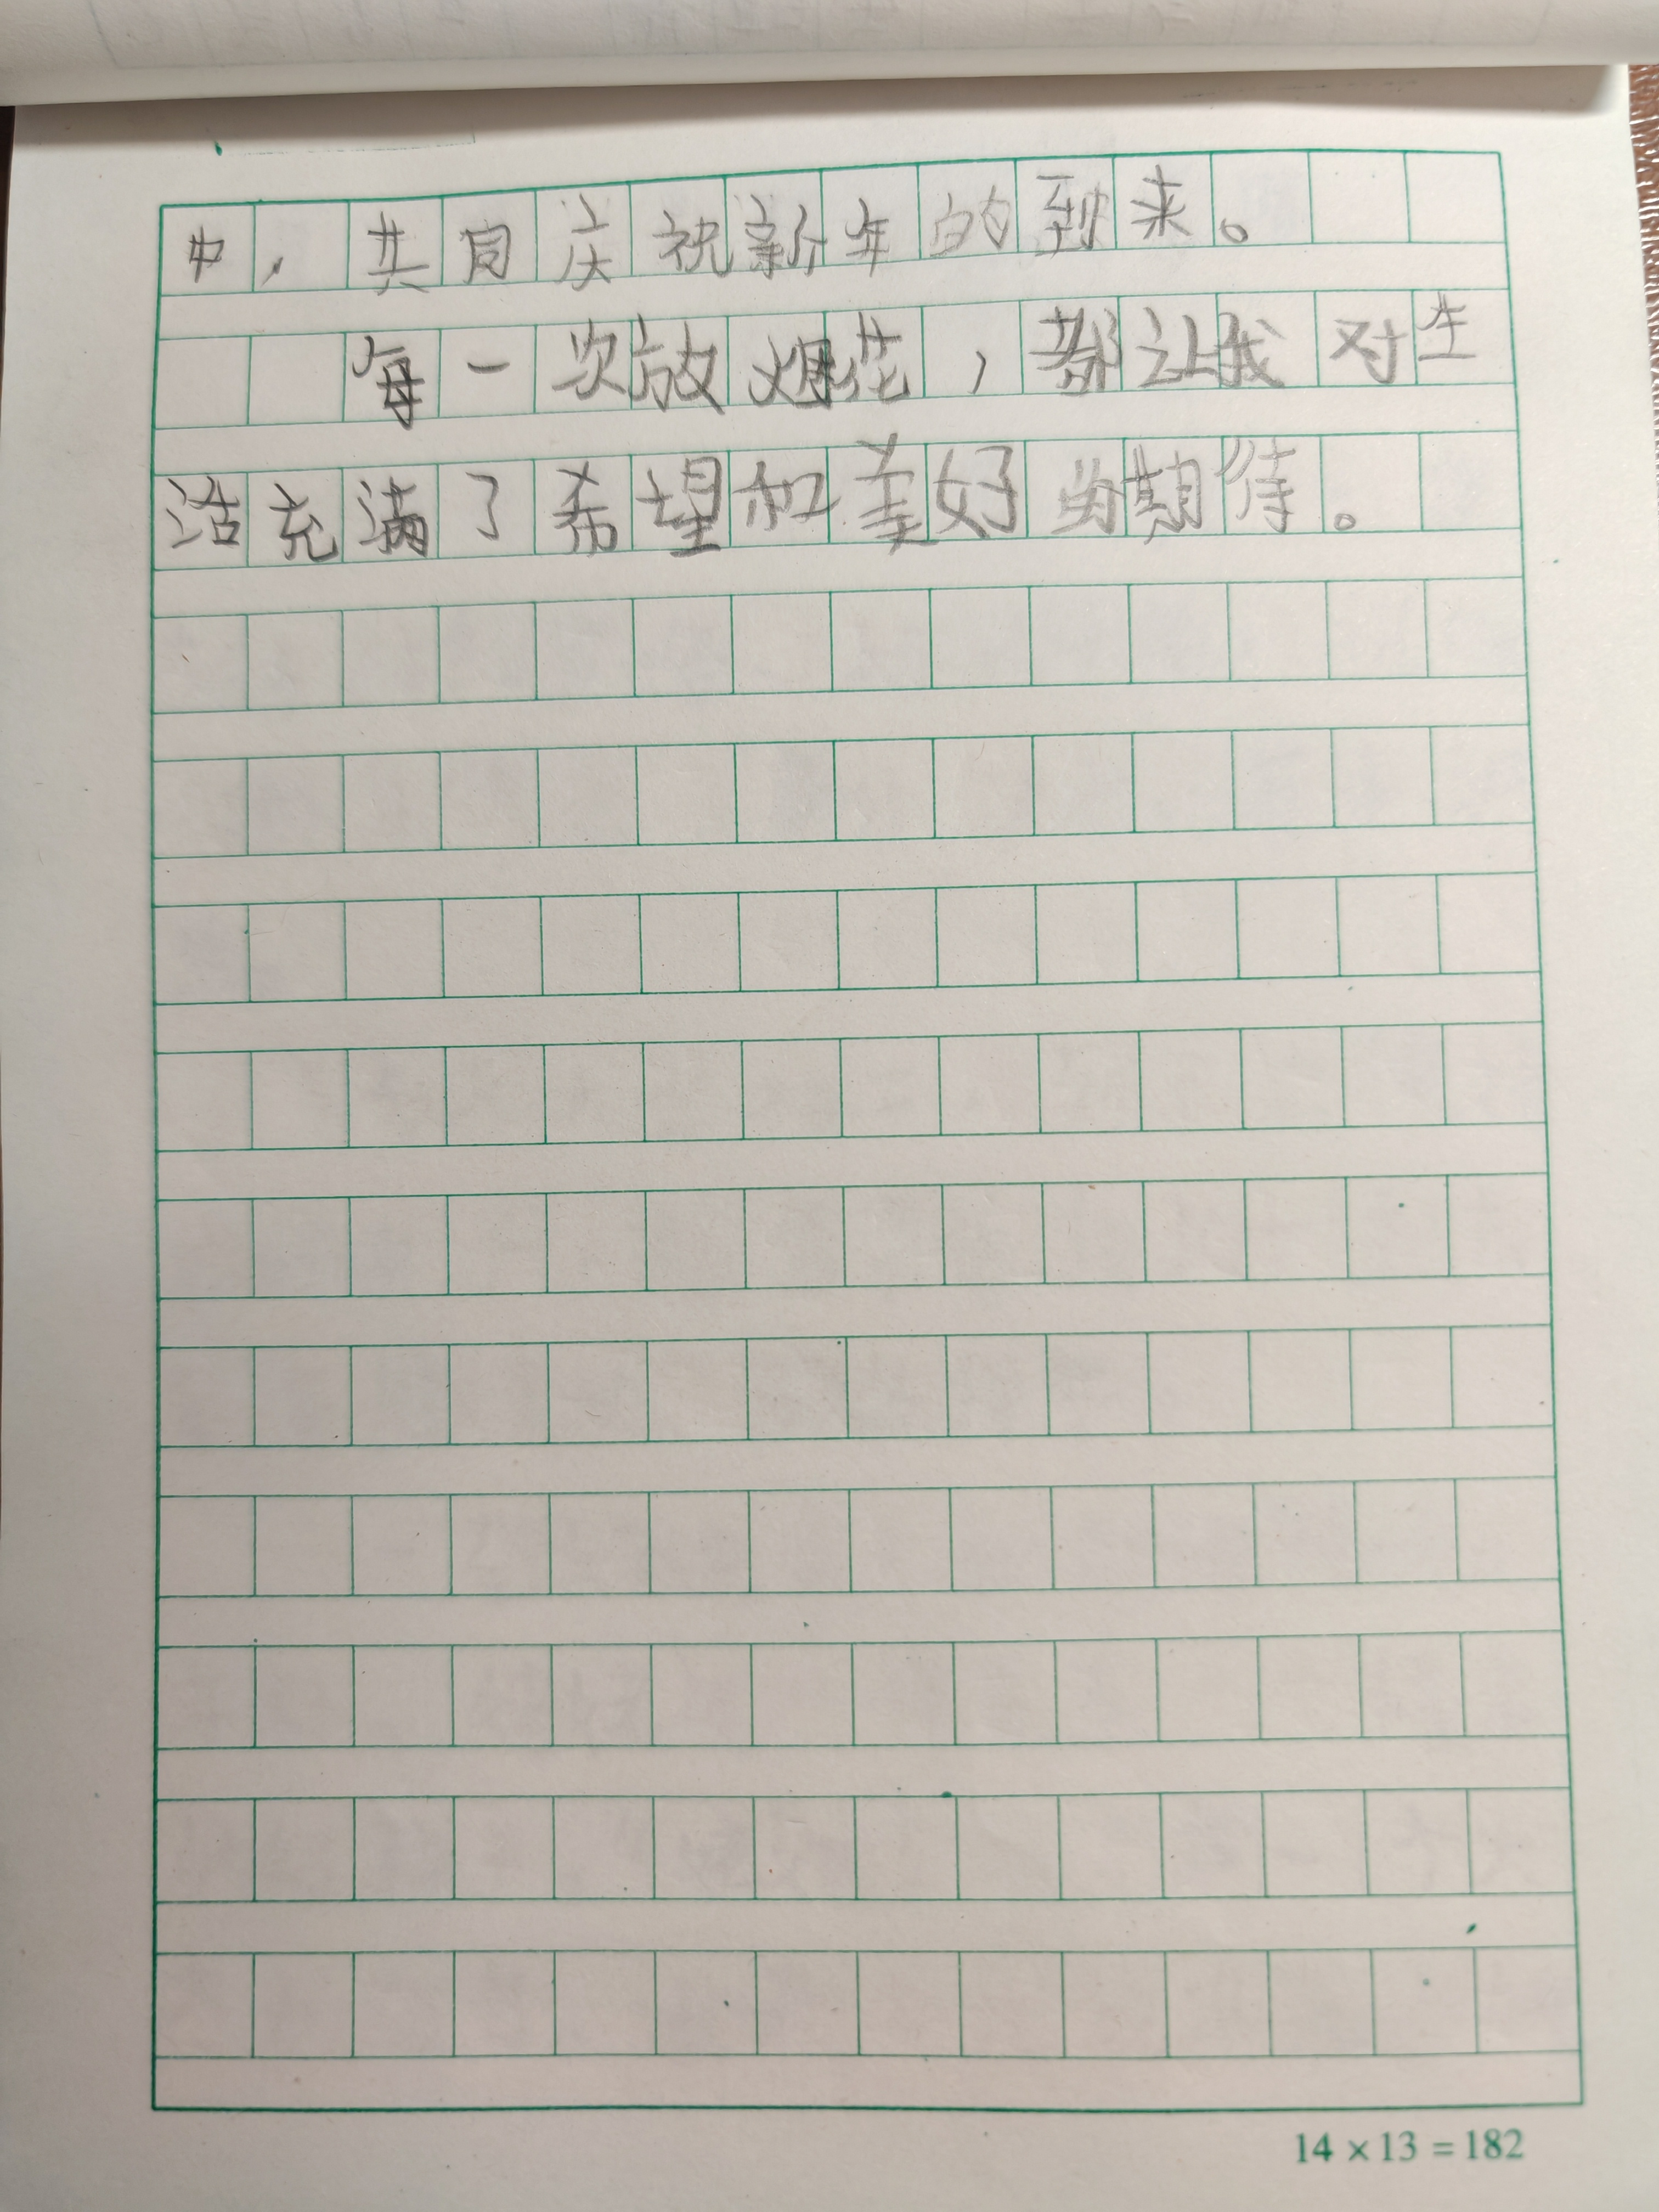 中，共同庆祝新年的到来。
每一次放烟花，都让我对生
活充满了希望和美好的期待。
14×13=182